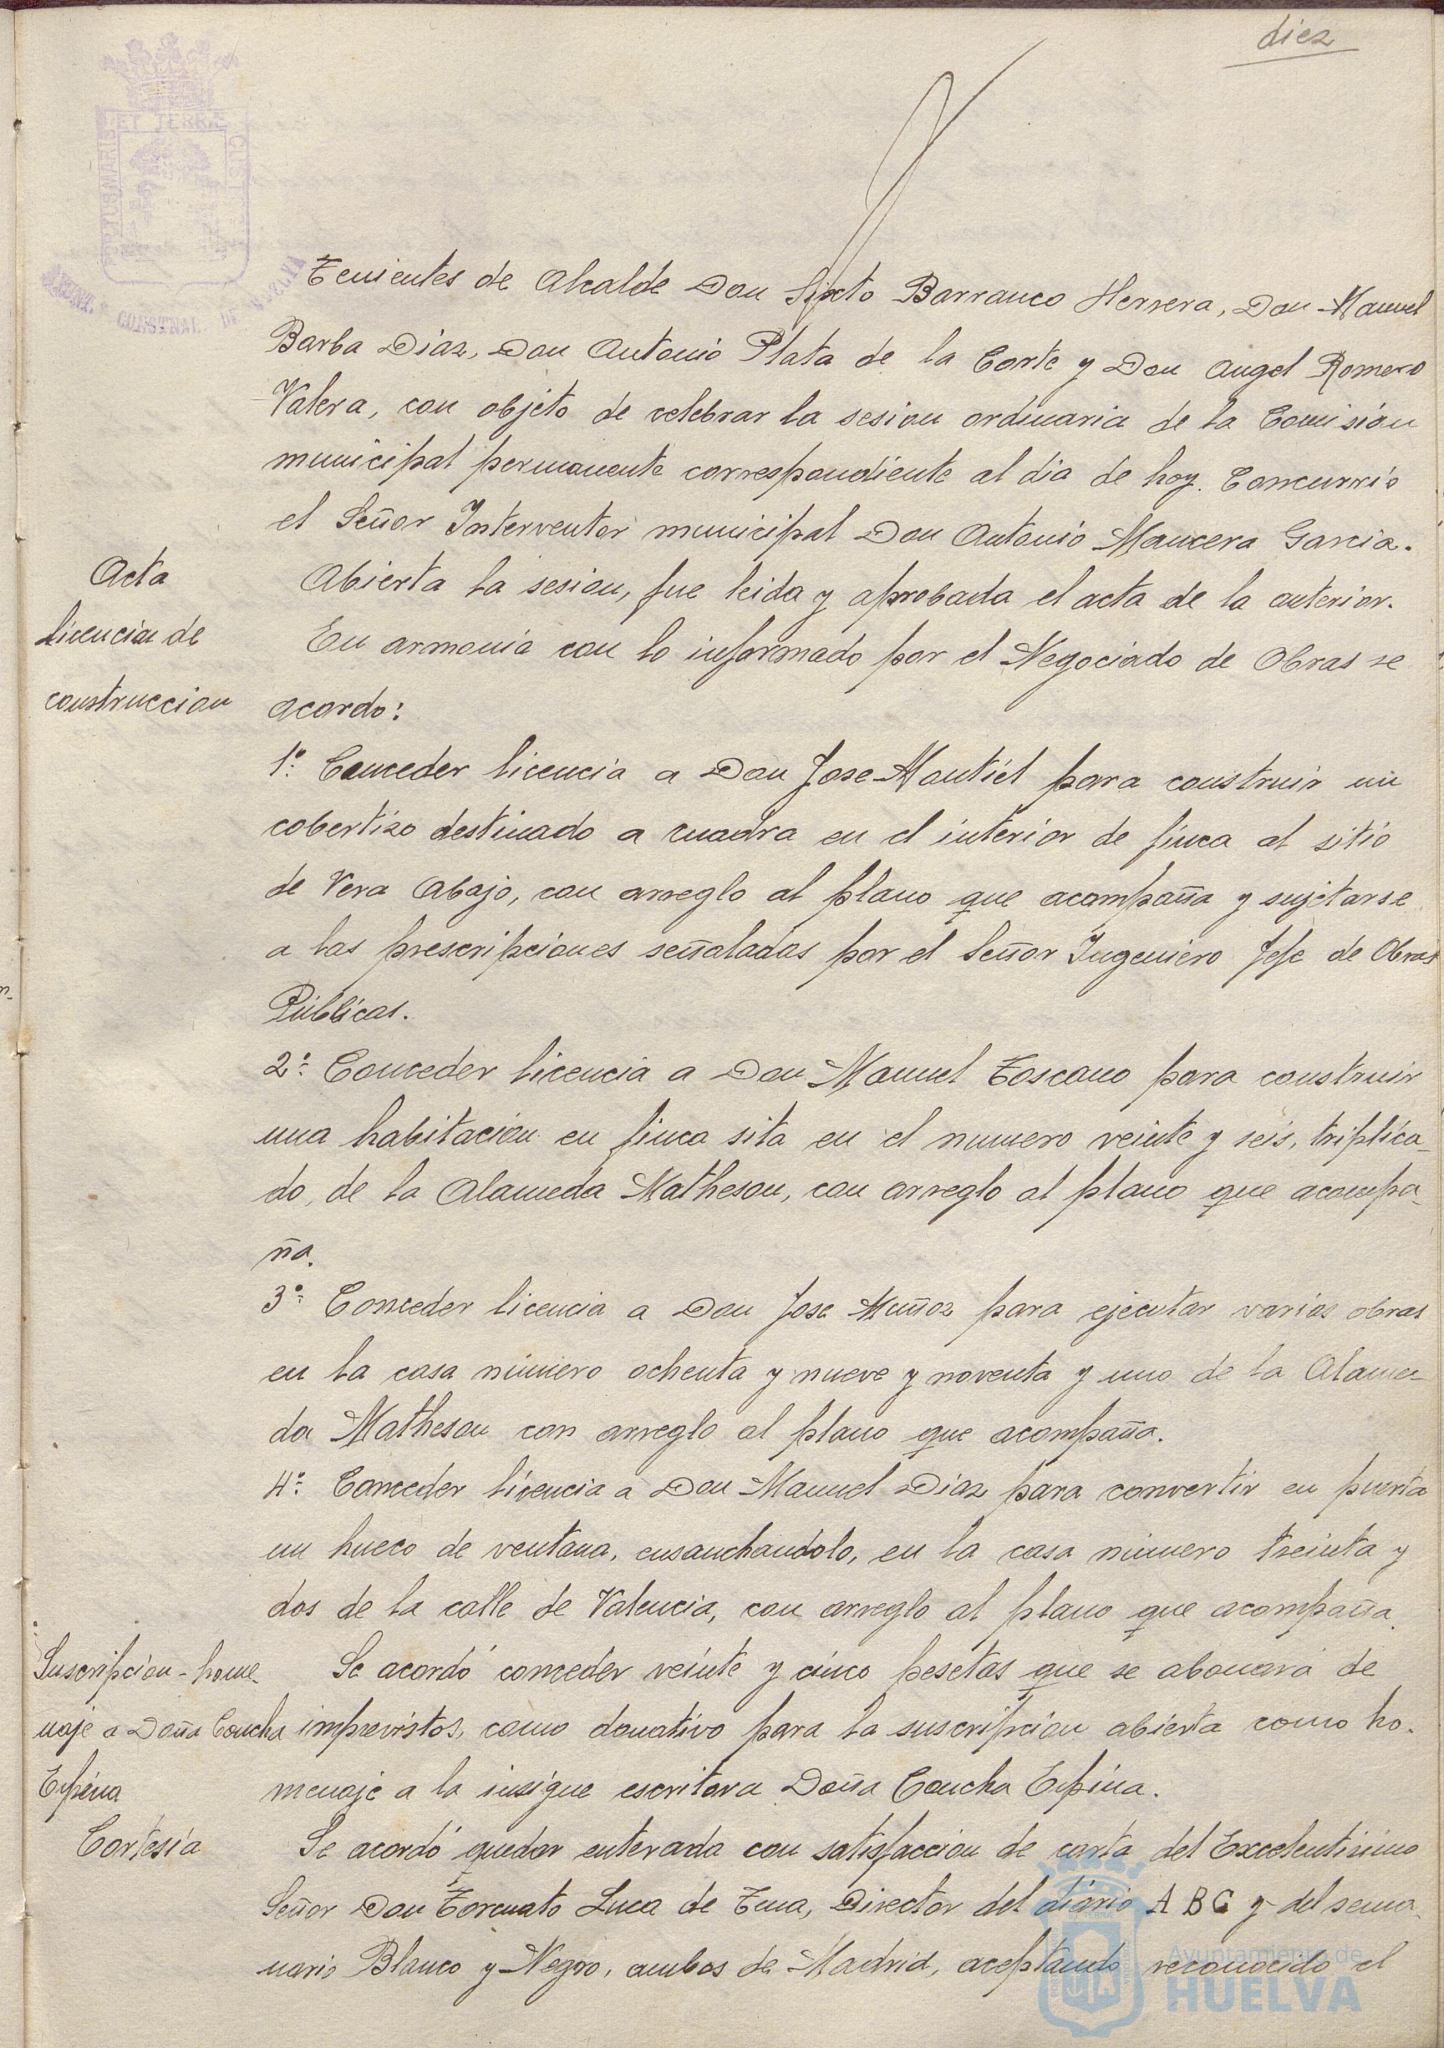 diez
Tenientes de Alcalde Don Sixto Barranco Herrera, Don Manuel
Barba Diaz, Don Antonio Plata de la Corte y Don Angel Romero
Valera, con objeto de celebrar la sesion ordinaria de la Comisión
municipal permanente correspondiente al dia de hoy. Concurrió
el Señor Interventor municipal Don Antonio Mancera Garcia.
Acta
Abierta la sesion, fue leida y aprobada el acta de la anterior.
Licencias de
construccion
En armonia con lo informado por el Negociado de Obras se
acordo:
1º: Conceder licencia a Don Jose Montiel para construir un
cobertizo destinado a cuadra en el interior de finca al sitio
de Vera Abajo, con arreglo al plano que acompaña y sujetarse
a las prescripciones señaladas por el Señor Ingeniero Jefe de Obras
Públicas.
2º: Conceder licencia a Don Manuel Toscano para construir
una habitación en finca sita en el numero veinte y seis, triplica-
do, de la Alameda Matheson, con arreglo al plano que acompa-
ña.
3º: Conceder licencia a Don Jose Muñoz para ejecutar varias obras
en la casa número ochenta y nueve y noventa y uno de la Alame-
da Matheson con arreglo al plano que acompaña.
4º: Conceder licencia a Don Manuel Diaz para convertir en puerta
un hueco de ventana, ensanchandolo, en la casa número treinta y
dos de la calle de Valencia, con arreglo al plano que acompaña.
Suscripcion-home-
naje a Doña Concha
Espina
Se acordó conceder veinte y cinco pesetas que se abonará de
imprevistos, como donativo para la suscripcion abierta como ho-
menaje a la insigne escritora Doña Concha Espina.
Cortesia
Se acordó quedar enterada con satisfaccion de carta del Excelentisimo
Señor Don Torcuato Luca de Tena, Director del diario A B C y del sema-
nario Blanco y Negro, ambos de Madrid, aceptando reconocido el
Ayuntamiento de
HUELVA